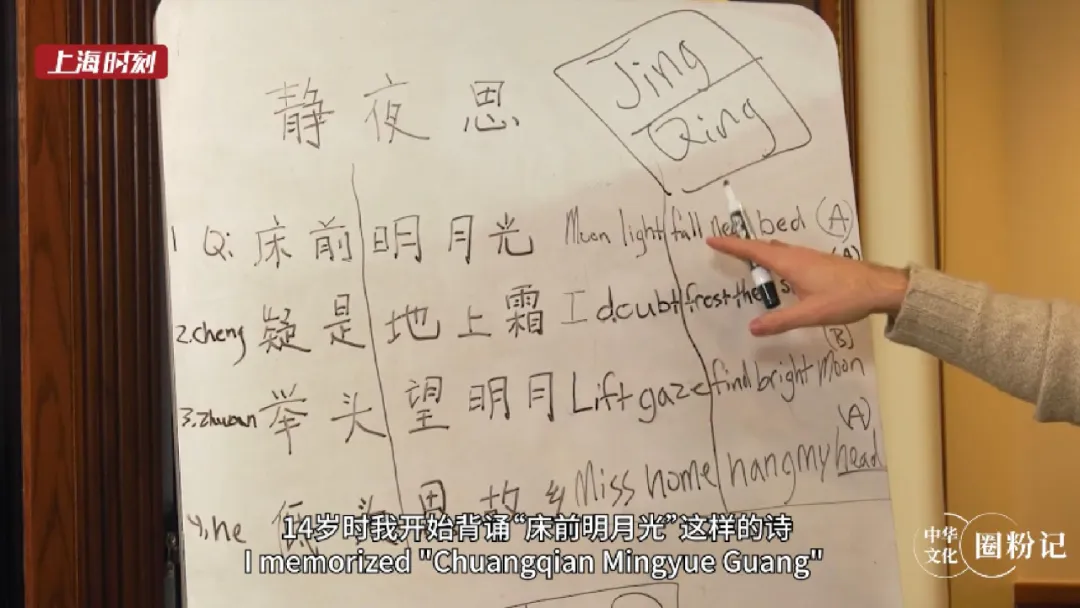 上海时刻
静夜思
Jing
Qing
1 Q: 床前明月光 Moon light fall near bed (A)
(A)
2.cheng 疑是地上霜 I doubt frost the
(B)
3.zhuan 举头望明月 Lift gaze find bright Moon
(A)
4.he 低头思故乡 Miss home hang my head
14岁时我开始背诵“床前明月光”这样的诗
I memorized "Chuangqian Mingyue Guang"
中华文化
圈粉记